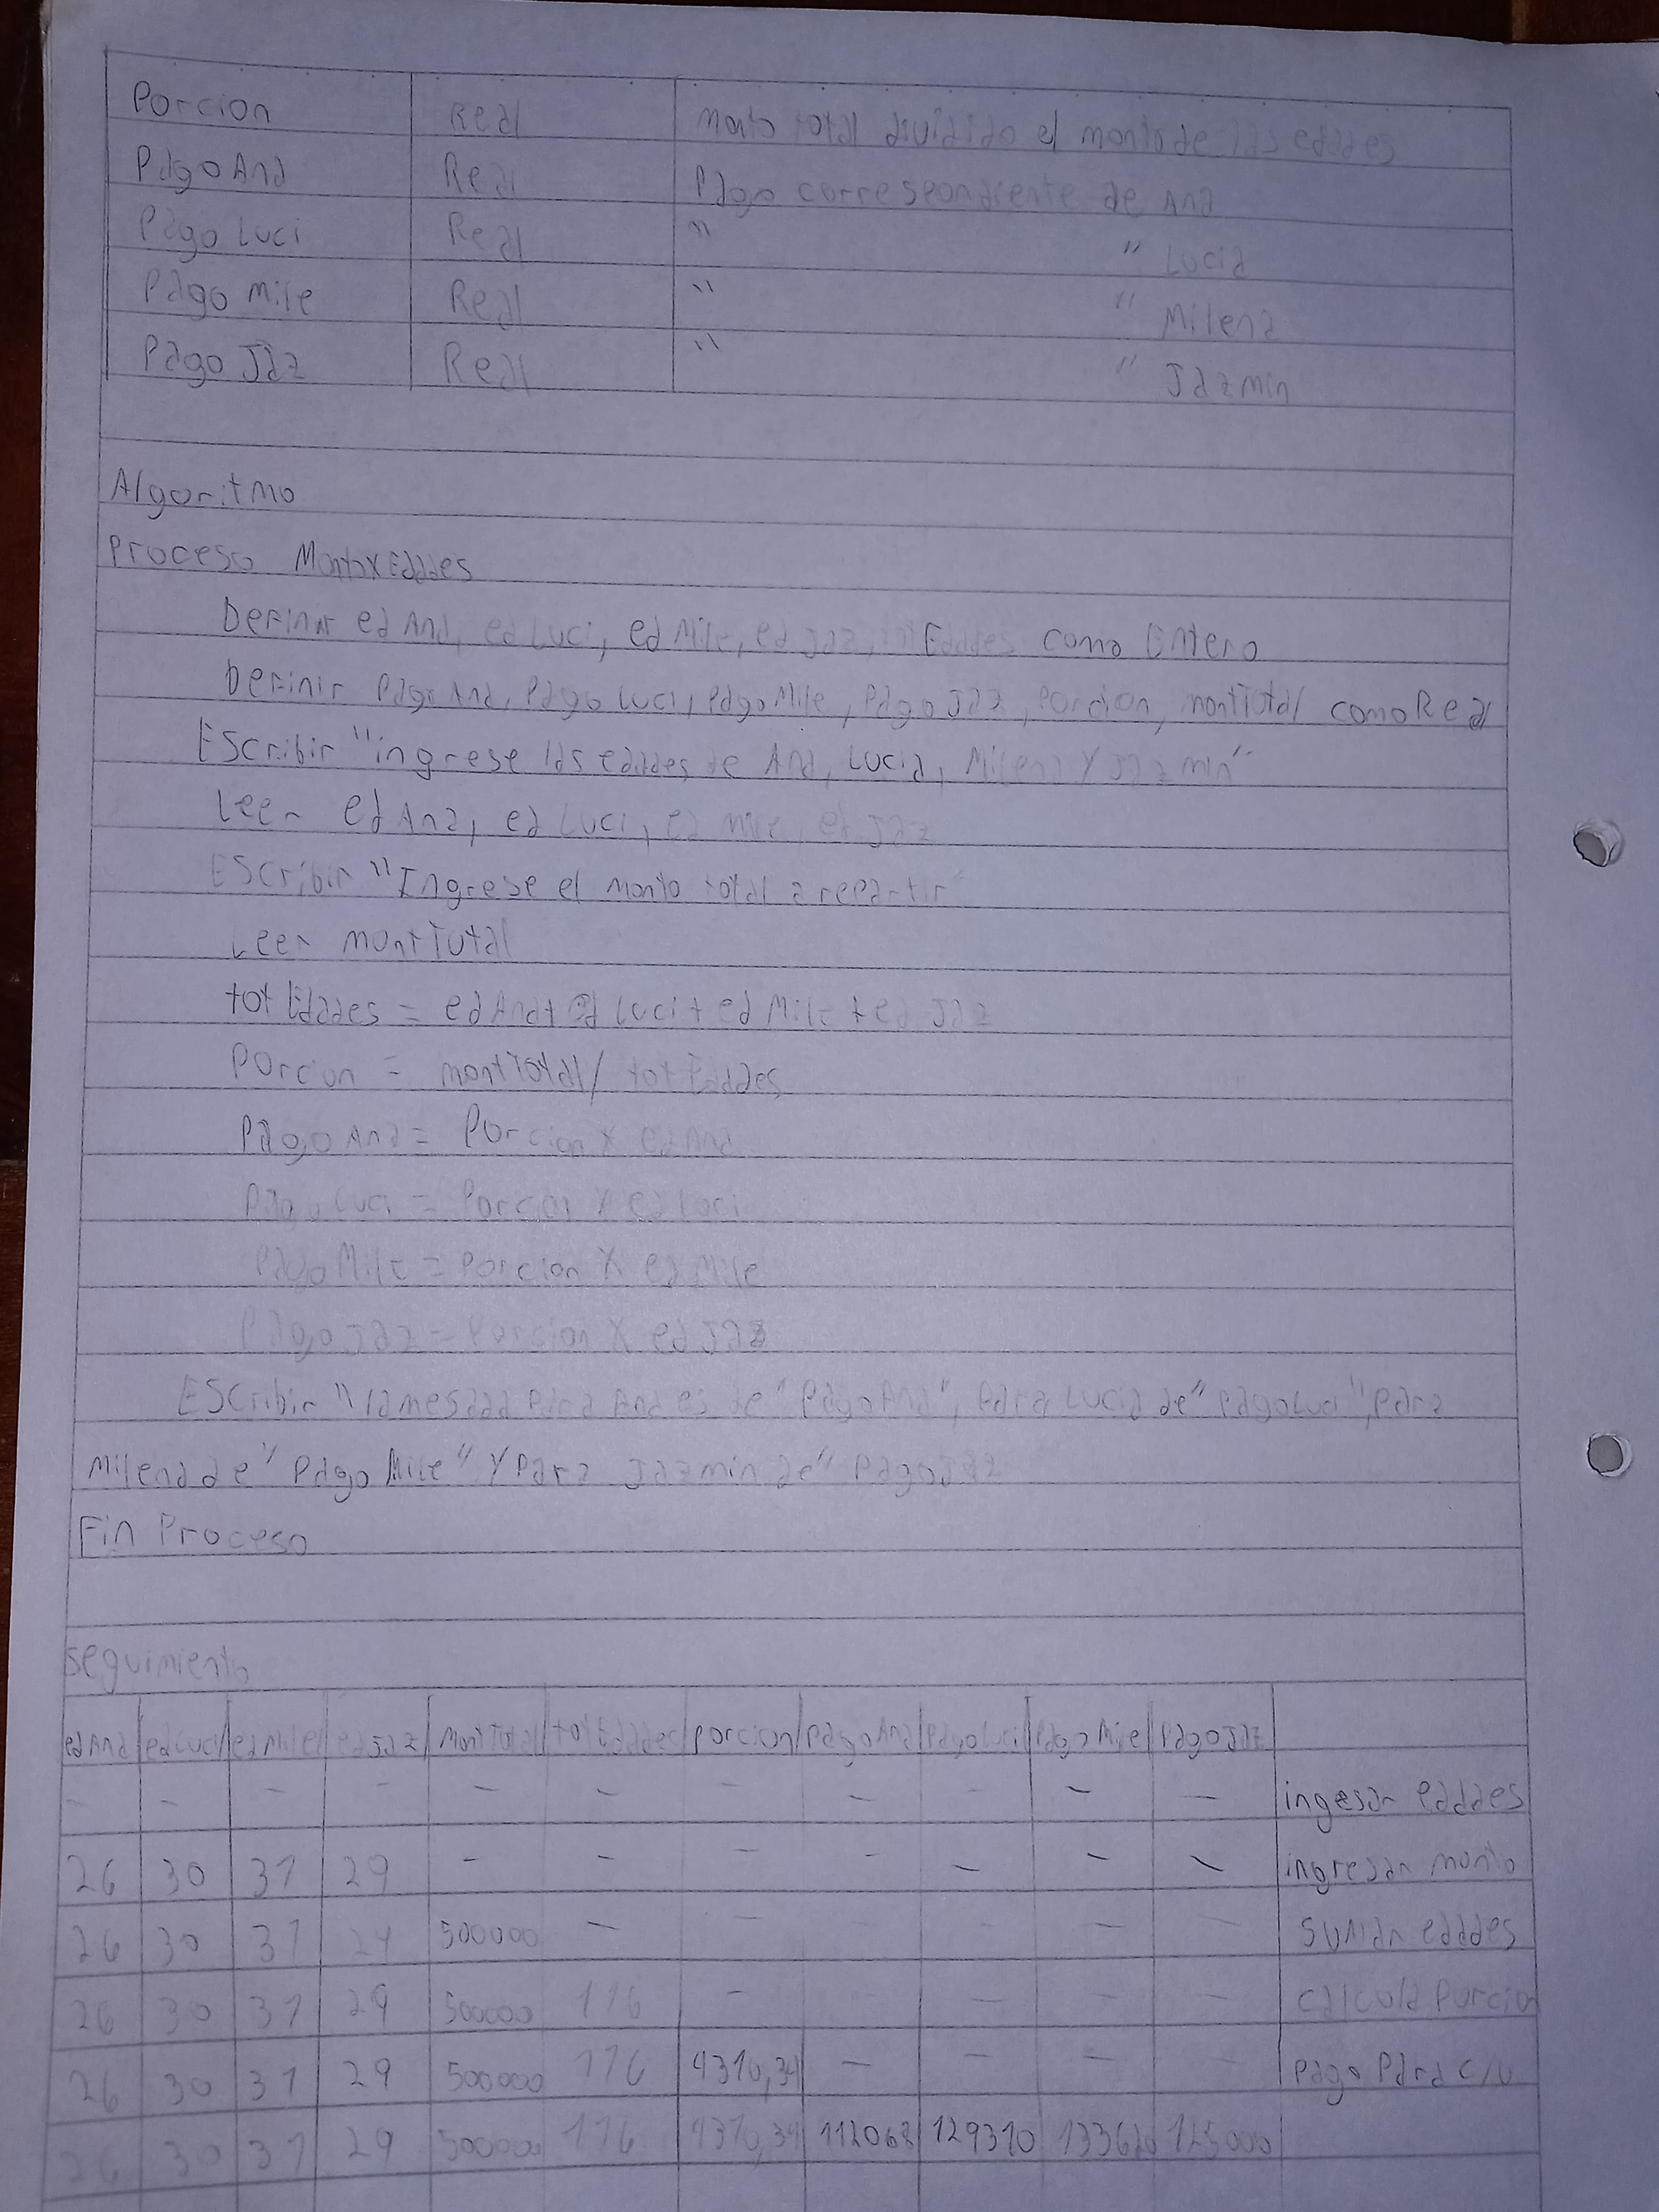 Porcion Real Monto total dividido el monto de las edades
Pago Ana Real Pago correspondiente de Ana
Pago Luci Real " " Lucia
Pago Mile Real " " Milena
Pago Jaz Real " " Jazmin
Algoritmo
Proceso MontoxEdades
Definir edAna, edLuci, edMile, edJaz, totEdades como Entero
Definir PagoAna, PagoLuci, PagoMile, PagoJaz, Porcion, montTotal como Real
Escribir "ingrese las edades de Ana, Lucia, Milena y Jazmin"
Leer edAna, edLuci, edMile, edJaz
Escribir "Ingrese el monto total a repartir"
Leer montTotal
totEdades = edAna + edLuci + edMile + edJaz
Porcion = montTotal / totEdades
PagoAna = Porcion x edAna
PagoLuci = Porcion x edLuci
PagoMile = Porcion x edMile
PagoJaz = Porcion x edJaz
Escribir "la mesada Para Ana es de" PagoAna", Para Lucia de" PagoLuci", Para
Milena de" PagoMile" y Para Jazmin de" PagoJaz
Fin Proceso
Seguimiento
edAna edLuci edMile edJaz MontTotal totEdades Porcion PagoAna PagoLuci PagoMile PagoJaz
- - - - - - - - - - - ingesar edades
26 30 31 29 - - - - - - - ingresar monto
26 30 31 29 500000 - - - - - - Suman edades
26 30 31 29 500000 116 - - - - - Calcula Porcion
26 30 31 29 500000 116 4310,34 - - - - Pago Para c/u
26 30 31 29 500000 116 4310,34 112068 129310 133620 125000